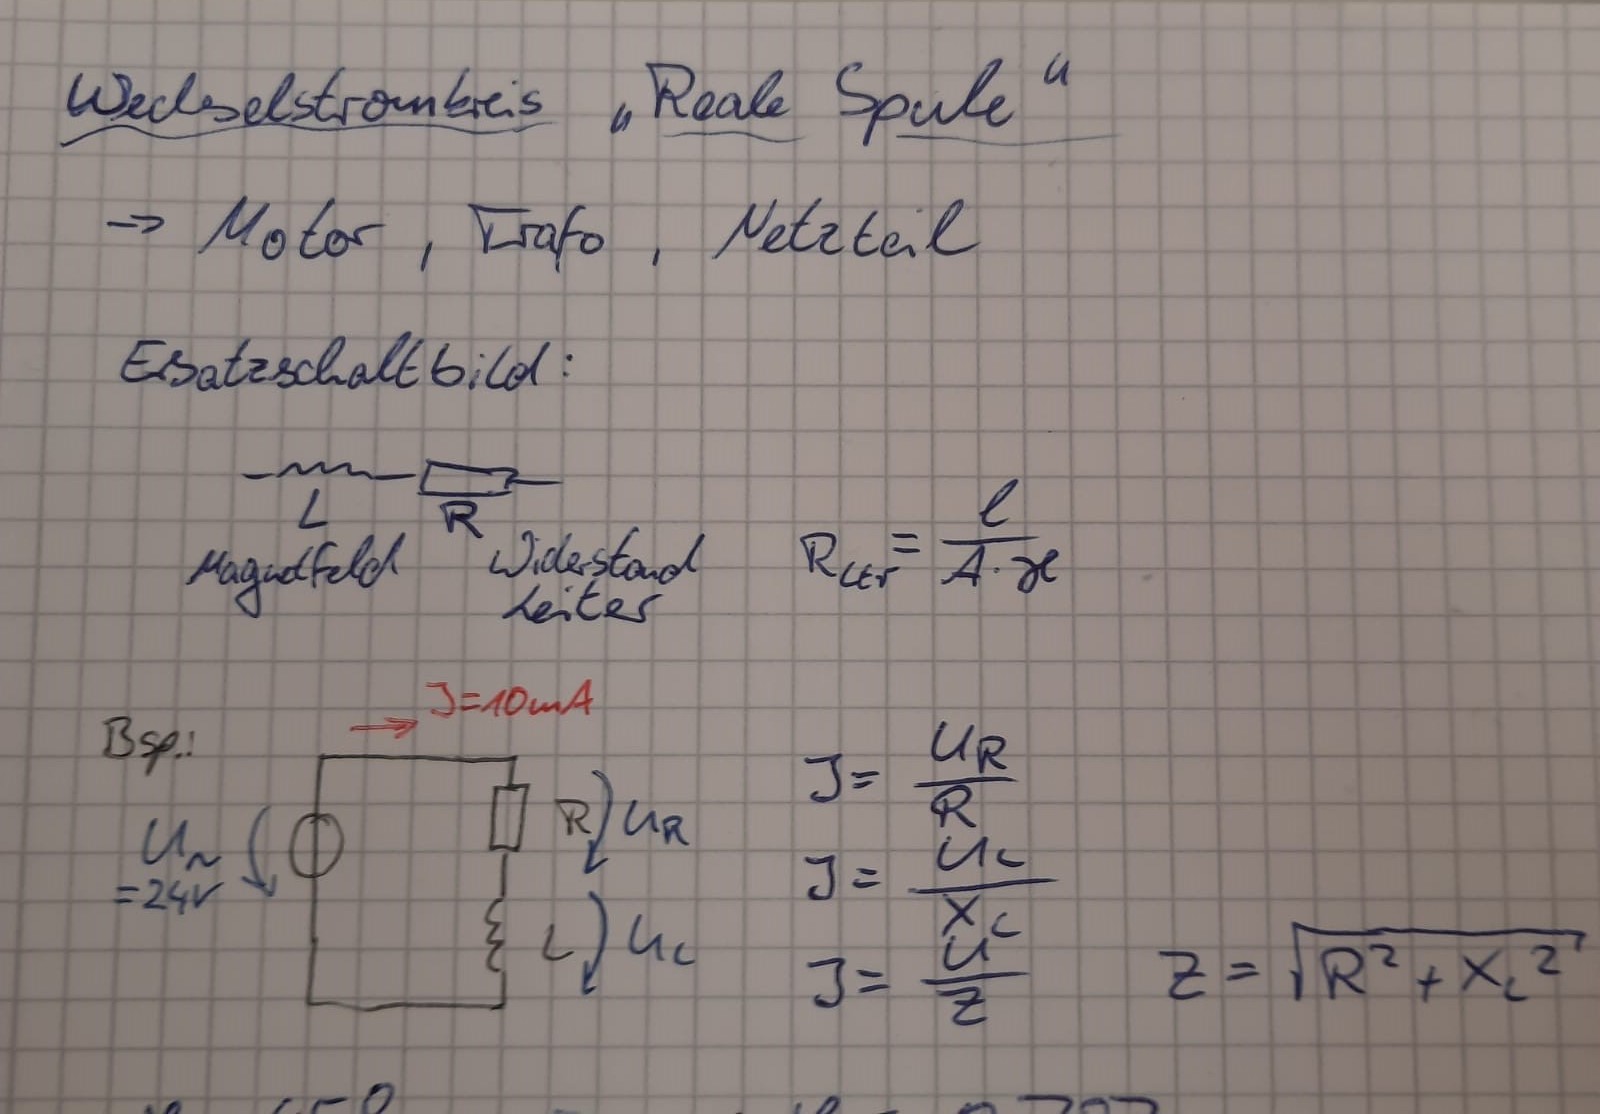 Wechselstromkreis „Reale Spule"
→ Motor, Trafo, Netzteil
Ersatzschaltbild:
L R
Magnetfeld Widerstand
Leiter
R_Ltr = l / (A · ϰ)
I = 10mA
Bsp.:
U~
= 24V
R U_R
L U_L
I = U_R / R
I = U_L / X_L
I = U / Z
Z = √(R² + X_L²)